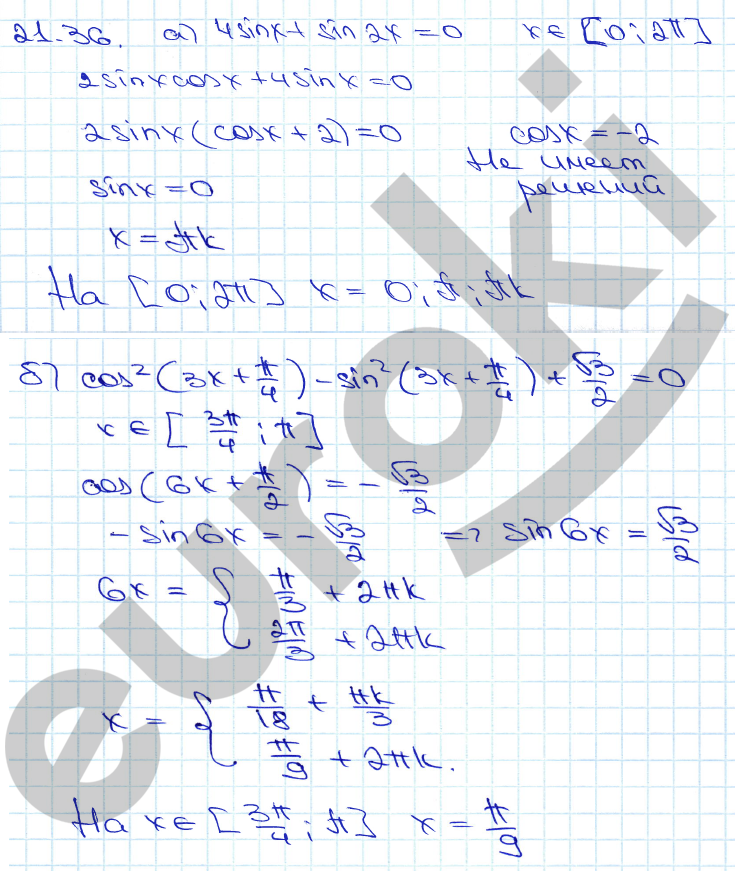 21.36. а) 4sinx + sin 2x = 0 x ∈ [0; 2π]
2sinxcosx + 4sinx = 0
2sinx(cosx + 2) = 0 cosx = -2
Не имеет
решений
sinx = 0
x = πk
На [0; 2π] x = 0; π; πk
б) cos²(3x + π/4) - sin²(3x + π/4) + √3/2 = 0
x ∈ [3π/4; π]
cos(6x + π/2) = - √3/2
- sin6x = - √3/2 => sin6x = √3/2
6x = { π/3 + 2πk
2π/3 + 2πk
x = { π/18 + πk/3
π/9 + 2πk.
На x ∈ [3π/4; π] x = π/9
euroki